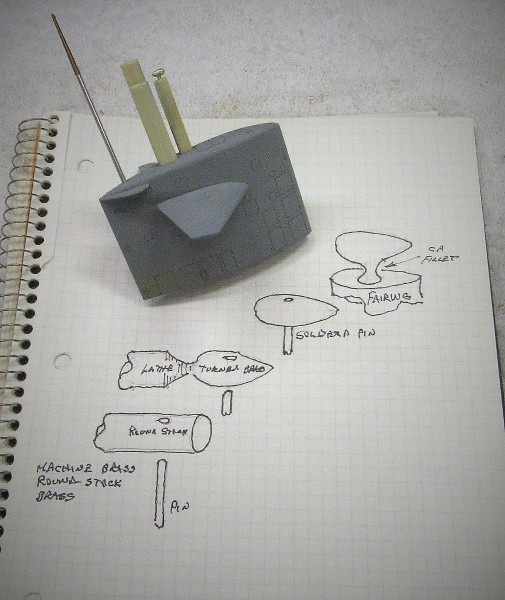 CA
FILLET
FAIRING
SOLDER A PIN
LATHE TURNED BRASS
ROUND STOCK
MACHINE BRASS
ROUND STOCK
BRASS
PIN